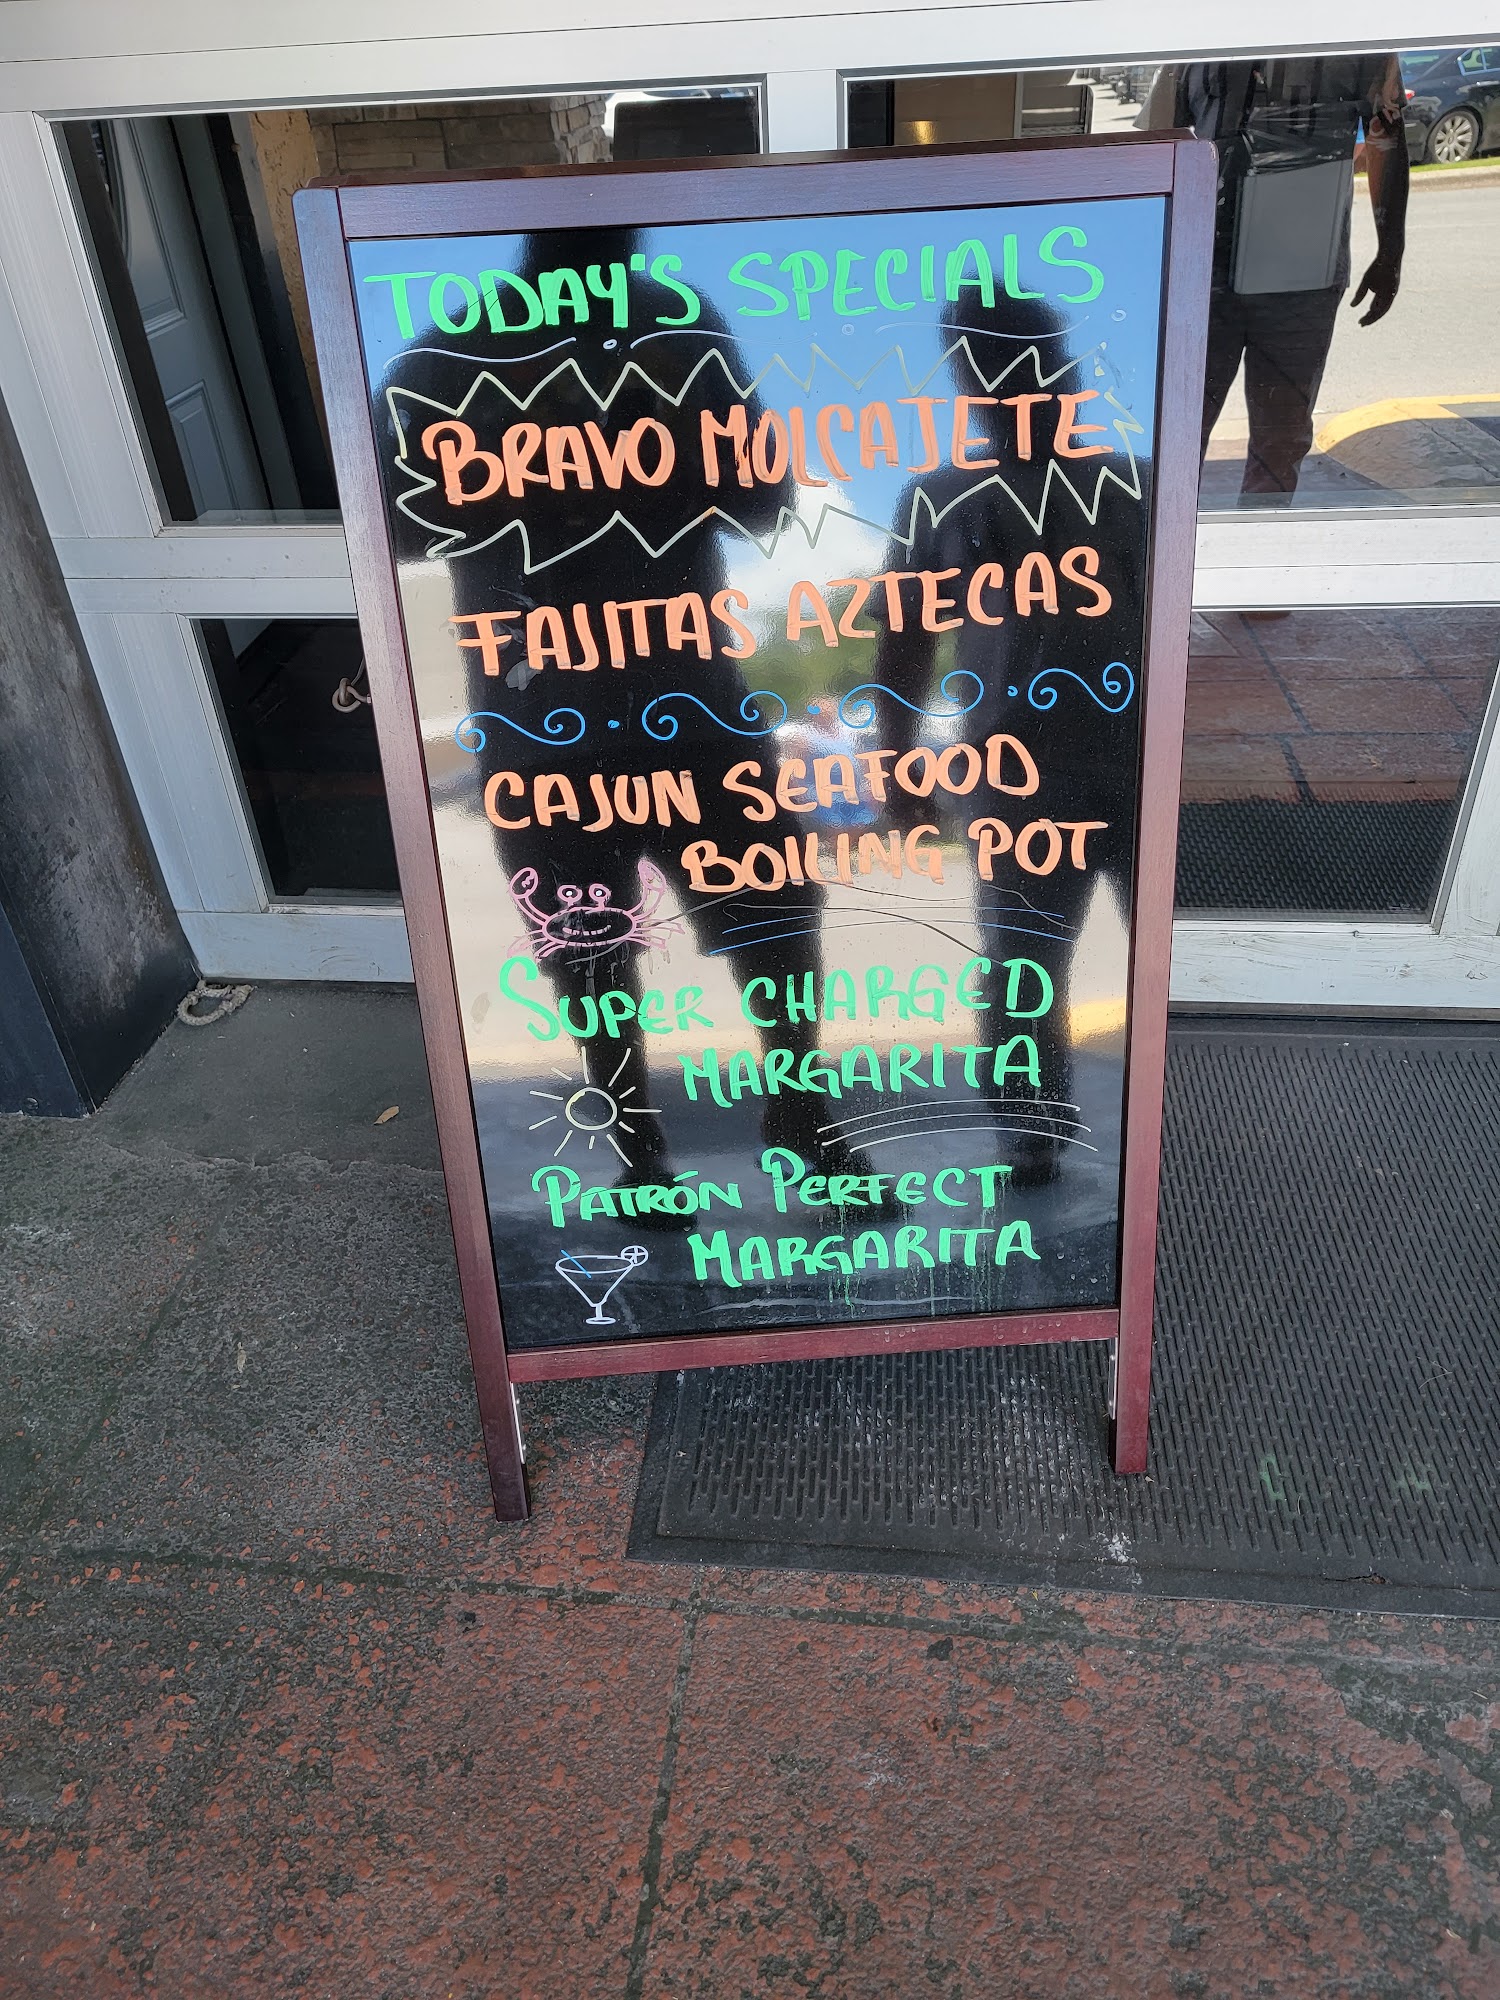 TODAY'S SPECIALS
BRAVO MOLCAJETE
FAJITAS AZTECAS
CAJUN SEAFOOD
BOILING POT
SUPER CHARGED
MARGARITA
PATRÓN PERFECT
MARGARITA